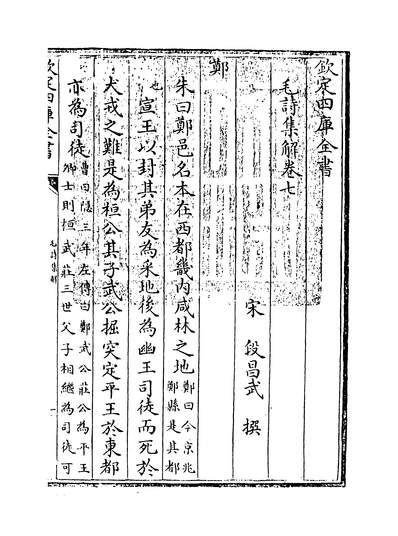 欽定四庫全書
毛詩集解卷七
宋 段昌武 撰
鄭
朱曰鄭邑名本在西都畿内咸林之地鄭曰今京兆鄭縣是其都
也宣王以封其弟友為采地後為幽王司徒而死於
犬戎之難是為桓公其子武公掘突定平王於東都
亦為司徒曹曰隠三年左傳曰鄭武公莊公為平王卿士則桓武莊三世父子相繼為司徒可
欽定四庫全書
毛詩集解
一